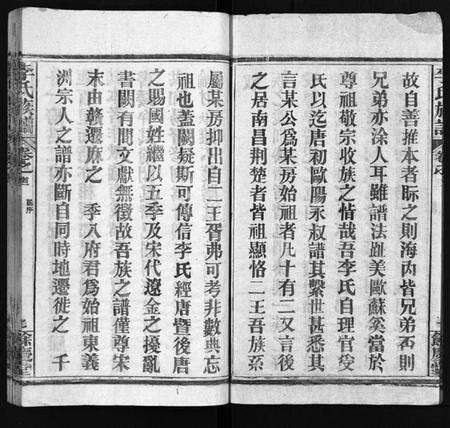 故自善推本者眎之則海內皆兄弟否則
兄弟亦涂人耳雖譜法趾美歐蘇奚當於
尊祖敬宗收族之恉哉吾李氏自理官受
氏以迄唐初歐陽永叔譜其繫世甚悉其
言某公爲某房始祖者凡十有二又言後
之居南昌荆楚者皆祖顯恪二王吾族系
屬某房抑出自二王胥弗可考非數典忘
祖也蓋闕疑斯可傳信李氏經唐暨後唐
之賜國姓繼以五季及宋代遼金之擾亂
書闕有間文獻無徵故吾族之譜僅尊宋
末由贛遷麻之 季八府君爲始祖東義
洲宗人之譜亦斷自同時地遷徙之 千
李氏族譜
卷之首